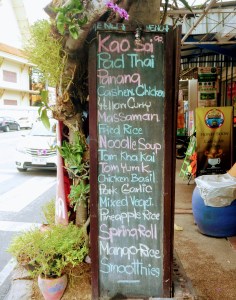 MENU
MENU
Kao Soi
Pad Thai
Panang
Cashew Chicken
Yellow Curry
Massaman
Fried Rice
Noodle Soup
Tom Kha Kai
Tom Yum K
Chicken Basil
Pork Garlic
Mixed Vegi.
Pineapple Rice
Spring Roll
Mango Rice
Smoothies